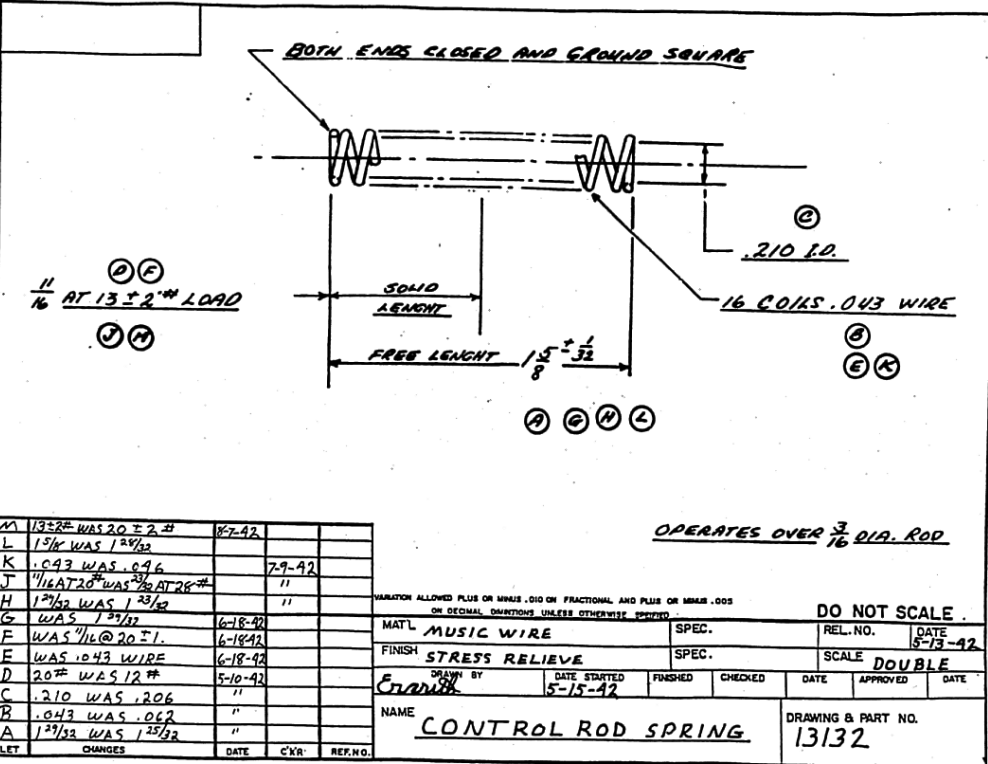 BOTH ENDS CLOSED AND GROUND SQUARE
C
.210 I.D.
D F
11/16 AT 13 ± 2 # LOAD
J M
SOLID
LENGHT
16 COILS .043 WIRE
B
E K
FREE LENGHT 1 5/8 ± 1/32
A G H L
OPERATES OVER 3/16 DIA. ROD
M 13±2# WAS 20 ± 2 # 8-7-42
L 1 5/8 WAS 1 28/32
K .043 WAS .046 7-9-42
J 11/16 AT 20# WAS 23/32 AT 28# "
H 1 29/32 WAS 1 23/32 "
G WAS 1 29/32 6-18-42
F WAS 11/16 @ 20 ± 1. 6-18-42
E WAS .043 WIRE 6-18-42
D 20# WAS 12 # 5-10-42
C .210 WAS .206 "
B .043 WAS .062 "
A 1 29/32 WAS 1 25/32 "
LET CHANGES DATE C'K'R REF. NO.
VARIATION ALLOWED PLUS OR MINUS .010 ON FRACTIONAL AND PLUS OR MINUS .005
ON DECIMAL DIMENTIONS UNLESS OTHERWISE SPECIFIED
DO NOT SCALE.
MAT'L MUSIC WIRE SPEC. REL. NO. DATE 5-13-42
FINISH STRESS RELIEVE SPEC. SCALE DOUBLE
DRAWN BY DATE STARTED 5-15-42 FINISHED CHECKED DATE APPROVED DATE
NAME CONTROL ROD SPRING
DRAWING & PART NO.
13132